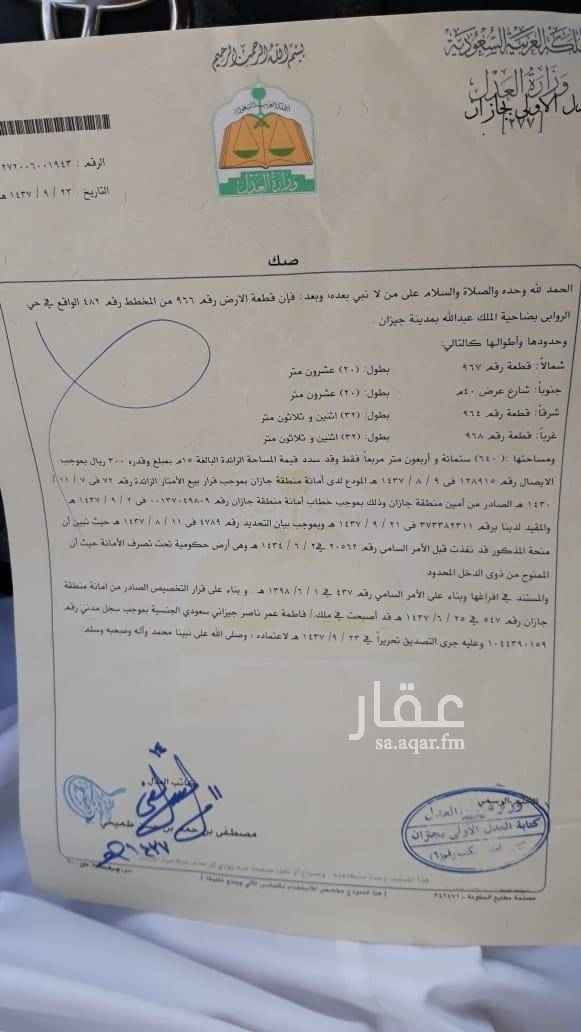 بسم الله الرحمن الرحيم
المملكة العربية السعودية
وزارة العدل
العدل الاولى بجازان
[٢٧٧]
وزارة العدل
الرقم : ٢٧٢٠٠٦٠٠١٩٤٣
التاريخ : ٢٣ / ٩ / ١٤٣٧ هـ
صك
الحمد لله وحده والصلاة والسلام على من لا نبي بعده، وبعد : فإن قطعة الارض رقم ٩٦٦ من المخطط رقم ٤٨٢ الواقع في حي
الروابى بضاحية الملك عبدالله بمدينة جيزان .
وحدودها وأطوالها كالتالي:
شمالاً: قطعة رقم ٩٦٧ بطول: (٢٠) عشرون متر
جنوباً: شارع عرض ٤٠م بطول: (٢٠) عشرون متر
شرقاً: قطعة رقم ٩٦٤ بطول: (٣٢) اثنين و ثلاثون متر
غرباً: قطعة رقم ٩٦٨ بطول: (٣٢) اثنين و ثلاثون متر
ومساحتها :( ٦٤٠) ستمائة و أربعون متر مربعاً فقط وقد سدد قيمة المساحة الزائدة البالغة ١٥م بمبلغ وقدره ٣٠٠ ريال بموجب
الايصال رقم ١٢٨٩١٥ فى ٩ / ٨ / ١٤٣٧ هـ المودع لدى أمانة منطقة جازان بموجب قرار بيع الأمتار الزائدة رقم ٧٢ فى ٧ / ١١ /
١٤٣٠ هـ الصادر من أمين منطقة جازان وذلك بموجب خطاب أمانة منطقة جازان رقم ٠٠١٣٧٠٤٩٨٠٩ فى ٢ / ٩ / ١٤٣٧ هـ
والمقيد لدينا برقم ٣٧٣٣٨٢٣١١ فى ٢١ / ٩ / ١٤٣٧ هـ وبموجب بيان التحديد رقم ٤٧٨٩ فى ١١ / ٨ / ١٤٣٧ هـ حيث تبين أن
منحة المذكور قد نفذت قبل الأمر السامى رقم ٢٠٥٦٢ في٢ / ٦ / ١٤٣٤ هـ وهى أرض حكومية تحت تصرف الأمانة حيث أن
الممنوح من ذوى الدخل المحدود
والمستند في افراغها وبناء على الأمر السامي رقم ٤٣٧ في ١ / ٦ / ١٣٩٨ هـ . و بناء على قرار التخصيص الصادر من امانة منطقة
جازان رقم ٥٤٧ في ٢٥ / ٦ / ١٤٣٧ هـ قد أصبحت في ملك / فاطمة عمر ناصر جيرانى سعودي الجنسية بموجب سجل مدني رقم
١٠٤٤٣٩٠١٥٩ وعليه جرى التصديق تحريراً في ٢٣ / ٩ / ١٤٣٧ هـ لاعتماده ، وصلى الله على نبينا محمد وآله وصحبه وسلم.
عقار
sa.aqar.fm
كاتب العدل
مصطفى بن
١٤٣٧هـ
الختم الرسمي
وزارة العدل
كتابة العدل الاولى بجازان
( هذا النموذج مخصص للاستخدام بالحاسب الآلي ويمنع تغليفه )
مصلحة مطابع الحكومة - ٢٤٦٤٧١